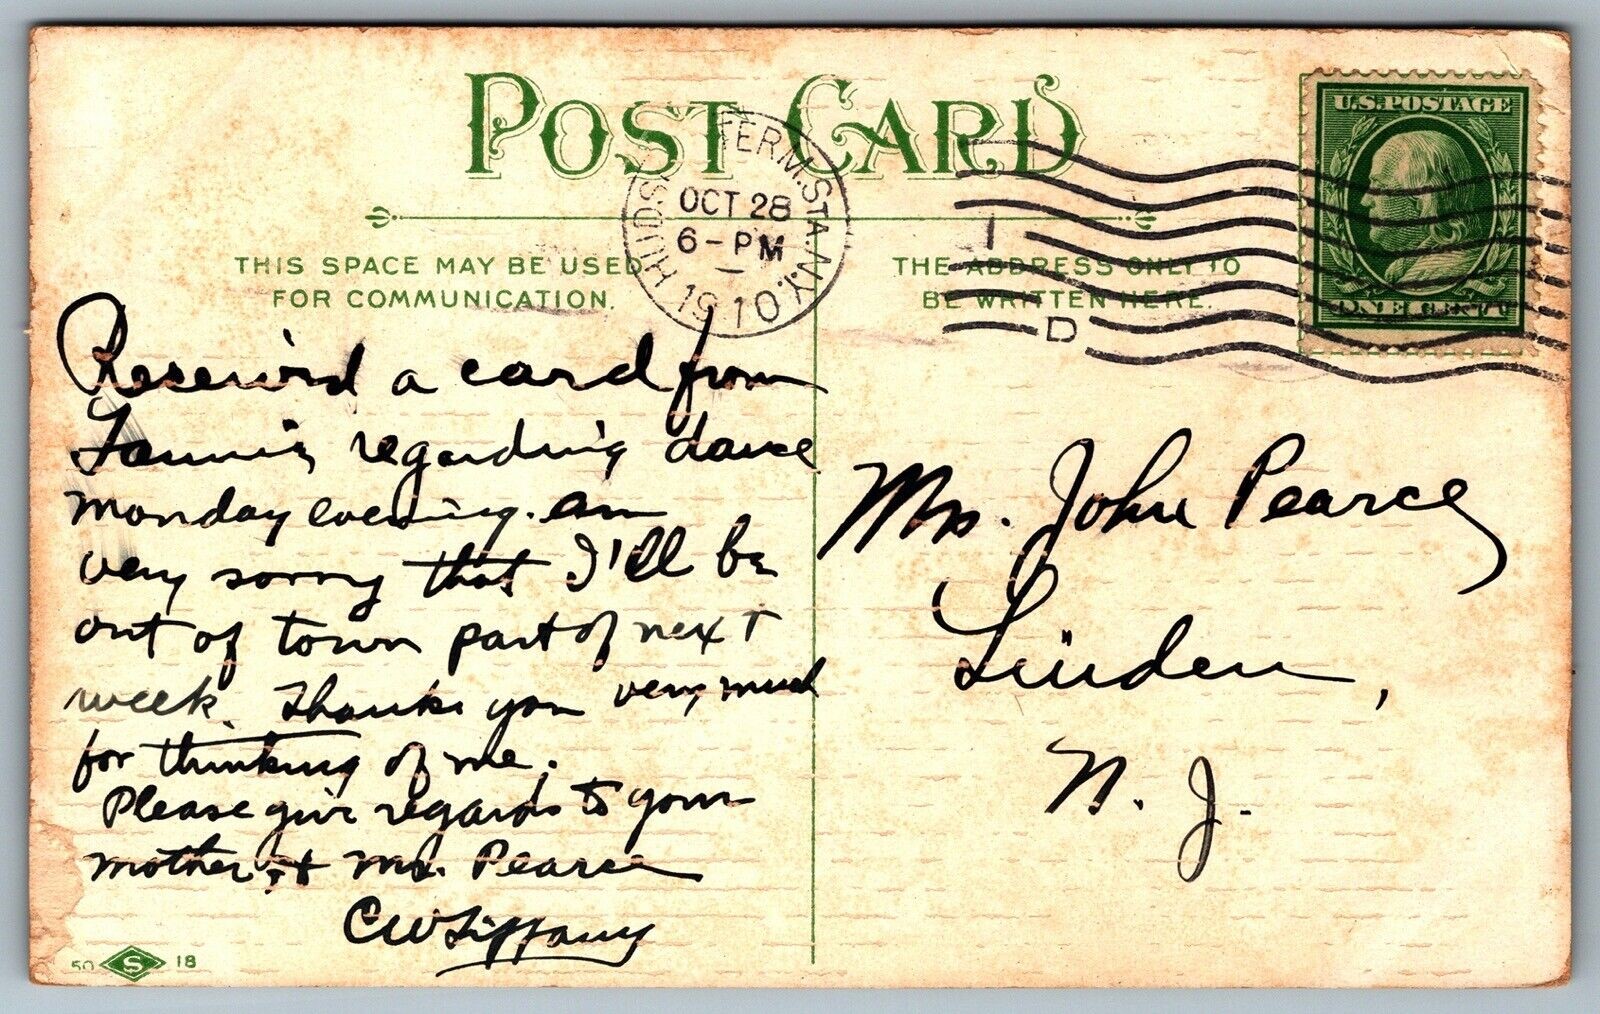 POST CARD
THIS SPACE MAY BE USED
FOR COMMUNICATION.
THE ADDRESS ONLY TO
BE WRITTEN HERE.
HUDSON TERM. STA. N.Y.
OCT 28
6-PM
1910
D
U.S. POSTAGE
ONE CENT
Received a card from
Fannie regarding dance
monday evening. am
very sorry that I'll be
out of town part of next
week. Thank you very much
for thinking of me.
Please give regards to your
mother & Mr. Pearce
CW Tiffany
Mrs. John Pearce
Linden,
N. J.
50 S 18